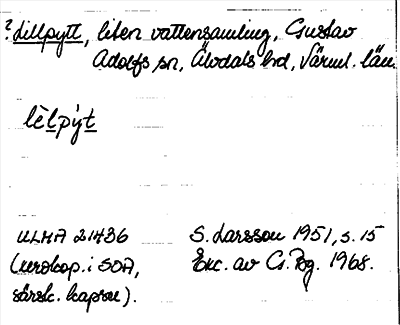 ? Lillpytt, liten vattensamling, Gustav
Adolfs sn, Älvdals hd, Värml. län.
lèlpỳt
ULMA 21436 S. Larsson 1951, s. 15
(xerokop. i SOA, Exc. av G. Pg. 1968.
särsk. kapsel).